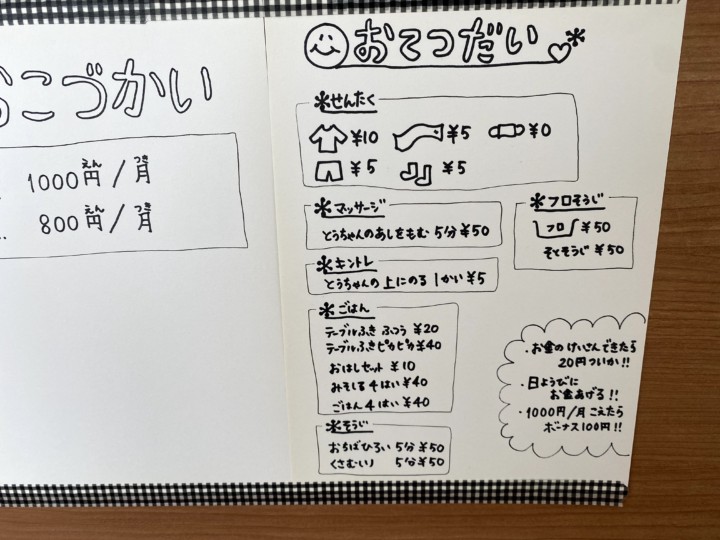 おこづかい
1000円えん/月つき
800円えん/月つき
おてつだい
*せんたく
¥10 ¥5 ¥0
¥5 ¥5
*マッサージ
とうちゃんのあしをもむ 5分¥50
*キントレ
とうちゃんの上にのる 1かい¥5
*フロそうじ
フロ ¥50
そとそうじ ¥50
*ごはん
テーブルふき ふつう ¥20
テーブルふきピカピカ¥40
おはしセット ¥10
みそしる4はい¥40
ごはん4はい¥40
*そうじ
おちばひろい 5分¥50
くさむしり 5分¥50
・お金のけいさんできたら
20円ついか!!
・日ようびに
お金あげる!!
・1000円/月こえたら
ボーナス100円!!